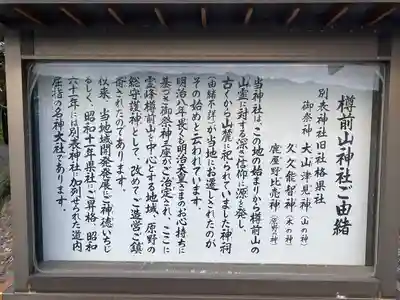 樽前山神社ご由緒
別表神社 旧社格県社
御祭神 大山津見神(山の神)
久々能智神(木の神)
鹿屋野比売神(原野の神)
当神社は、この地の始まりから樽前山の
山霊に対する深い信仰に源を発し、
古くから山麓に祀られていました神祠
(由緒不詳)が当地にお遷しされたのが
その始めと云われています。
明治八年畏くも明治天皇さまのお心持ちに
基づき御祭神三座のご治定され、ここに
霊峰樽前山を中心とする地域、原野の
総守護神として、改めてご造営ご鎮
斎されたのであります。
以来、当地域開発発展にご神徳いちじ
るしく、昭和十一年県社にご昇格、昭和
六十一年には別表神社に加列せられた道内
屈指の名神大社であります。